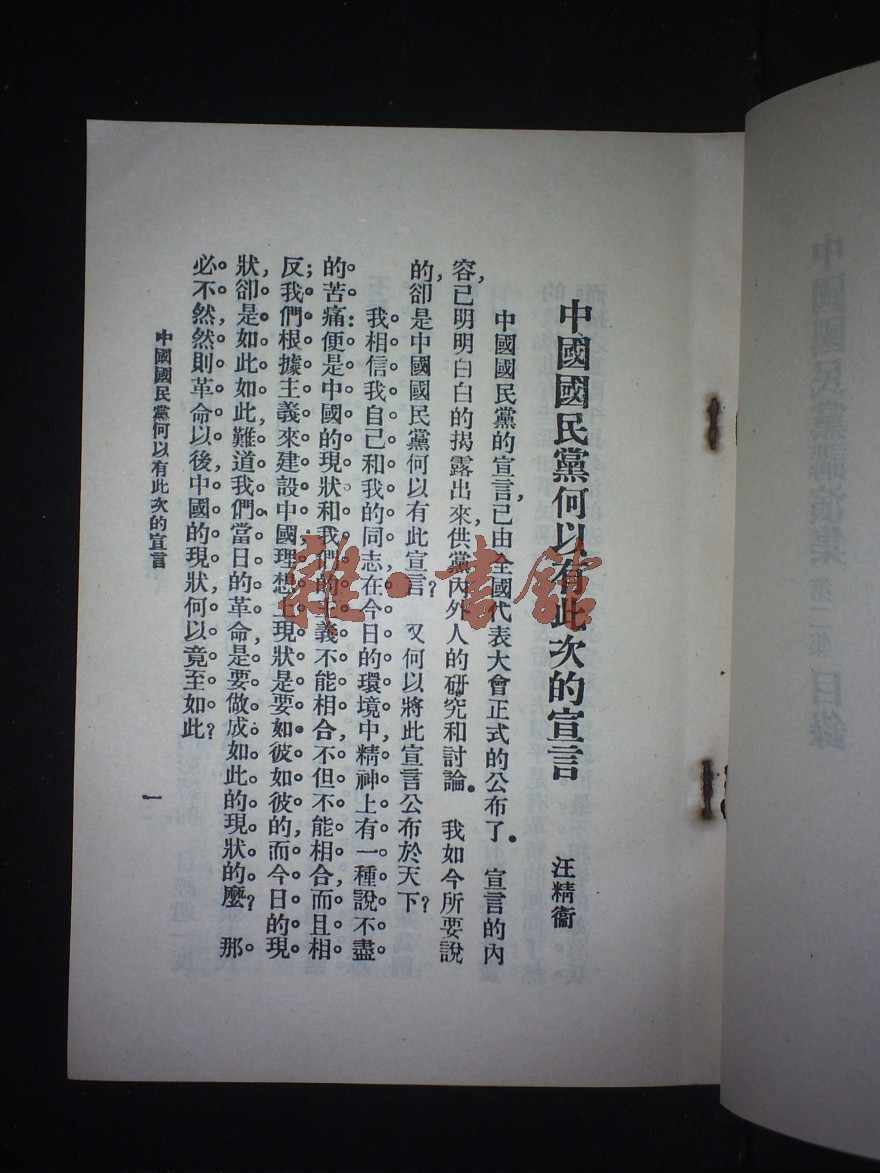 中國國民黨何以有此次的宣言
汪精衞
中國國民黨的宣言,已由全國代表大會正式的公布了. 宣言的內
容,已明明白白的揭露出來,供黨內外人的研究和討論. 我如今所要說
的,卻是中國國民黨何以有此宣言? 又何以將此宣言公布於天下?
我相信我自己和我的同志在今日的環境中精神上有一種說不盡
的苦痛:便是中國的現狀和我們的主義不能相合,不但不能相合而且相
反;我們根據主義來建設中國,理想上現狀是要如彼如彼的,而今日的現
狀,卻是如此如此,難道我們當日的革命,是要做成如此的現狀的麼? 那
必不然,然則革命以後中國的現狀,何以竟至如此?
中國國民黨何以有此次的宣言
一
雜·書館
中國國民黨講演集 第二集 目錄